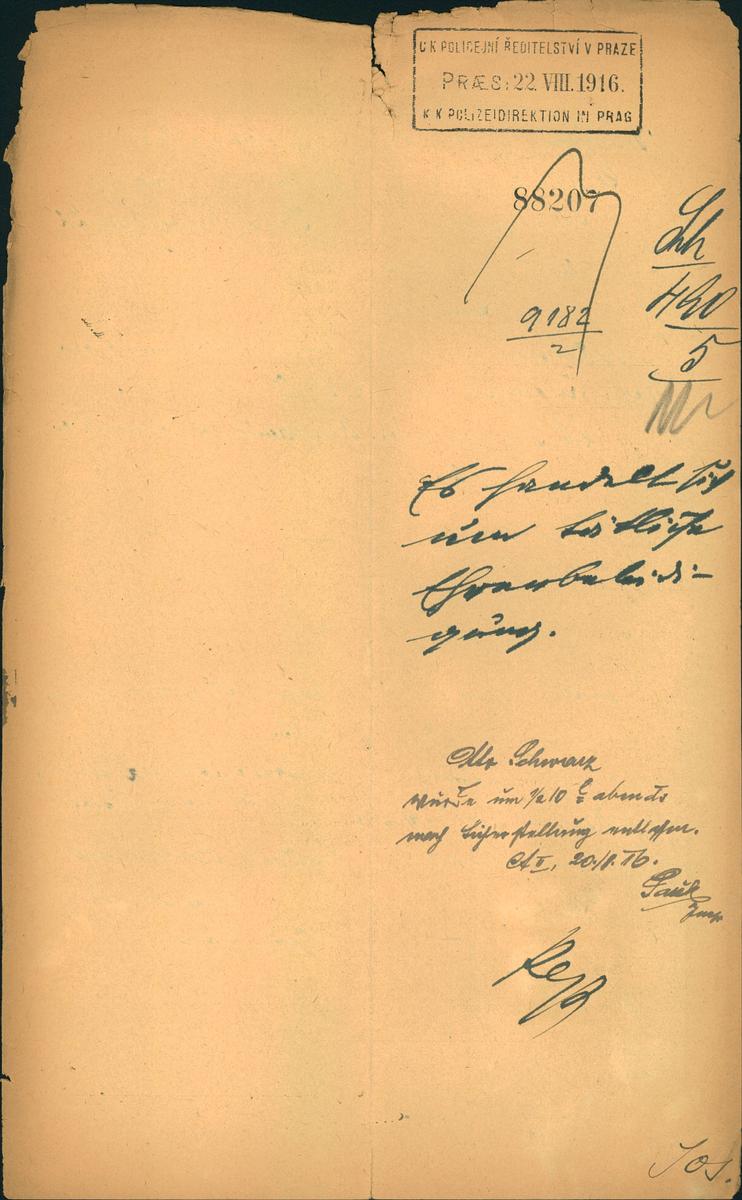 C K POLICEJNÍ ŘEDITELSTVÍ V PRAZE
PRÆS: 22. VIII. 1916.
K K POLIZEIDIREKTION IN PRAG
88207
9182
2
490
5
Es handelt sich
um tätliche
Ehrenbeleidi-
gung.
Otto Schwarz
wurde um 1/2 10 h abends
nach Sicherstellung entlassen.
20./8. 16.